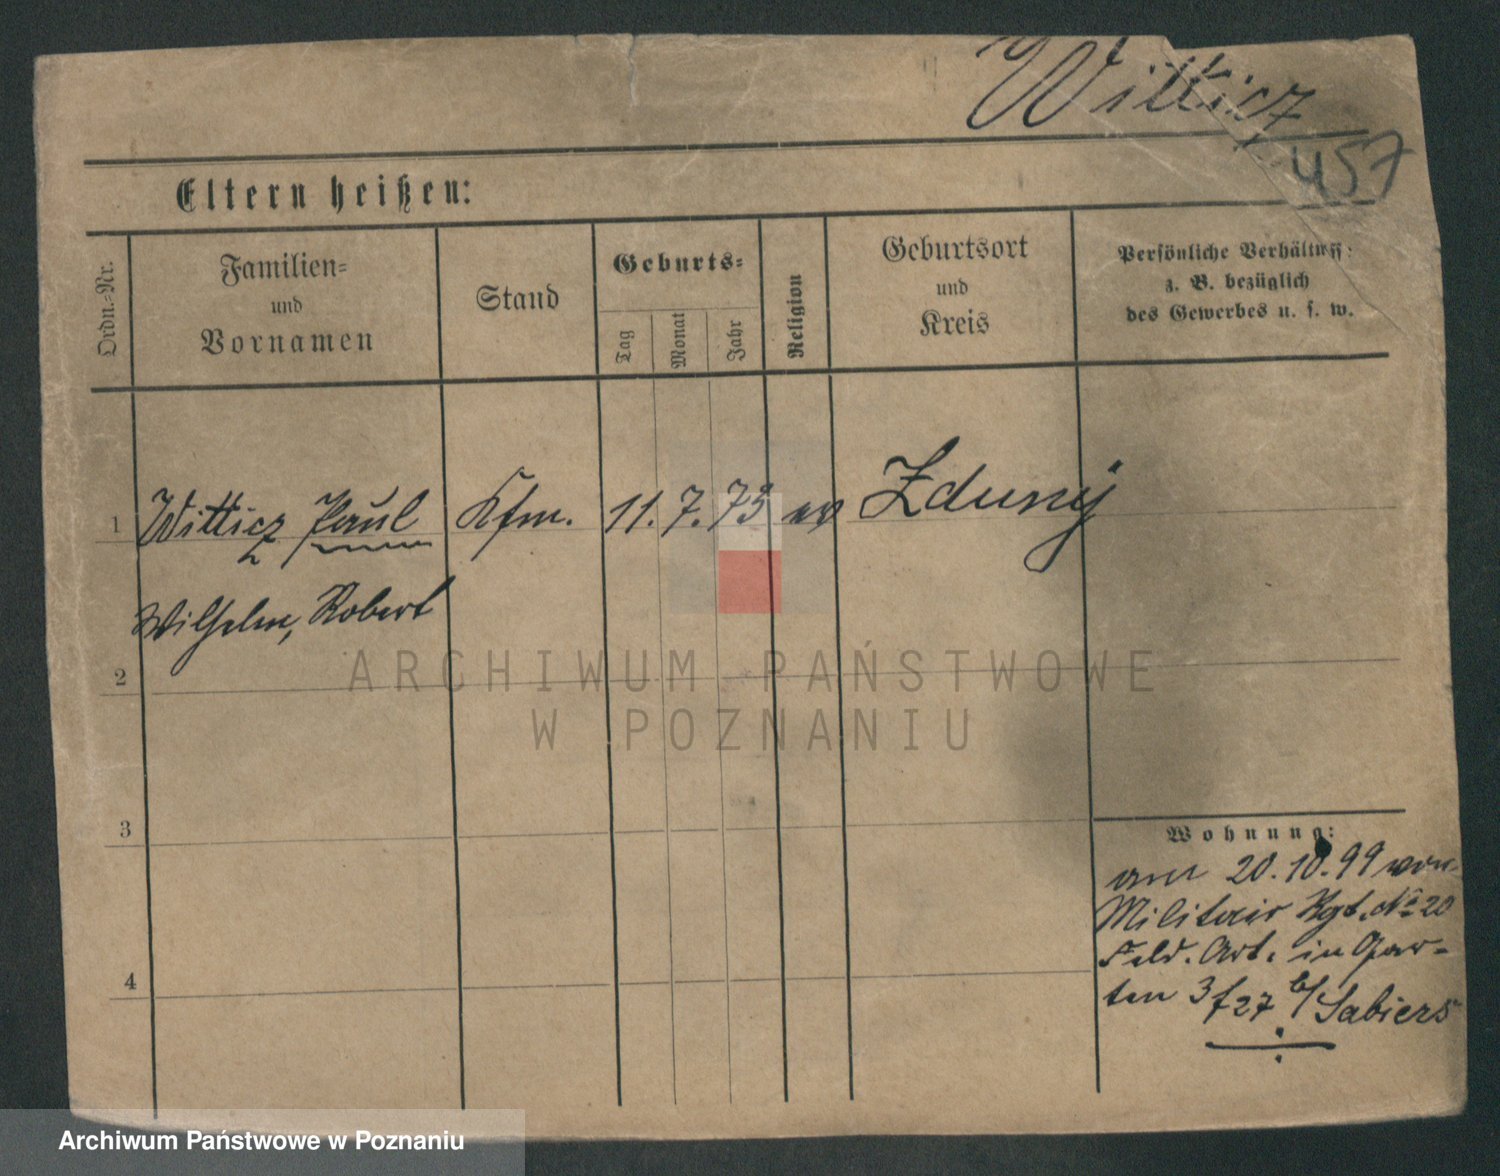 Witticz
457
Eltern heißen:
Ordn.-Nr.
Familien-
und
Vornamen
Stand
Geburts-
Tag
Monat
Jahr
Religion
Geburtsort
und
Kreis
Persönliche Verhältniss:
z. B. bezüglich
des Gewerbes u. s. w.
1 Witticz Paul Kfm. 11. 7. 73 ev Zduny
Wilhelm, Robert
2
3
4
Wohnung:
am 20.10.99 vom
Militair Rgt. No 20
Feld. Art. in Gar-
ten 3/27 b/ Sabiers
ARCHIWUM PAŃSTWOWE
W POZNANIU
Archiwum Państwowe w Poznaniu